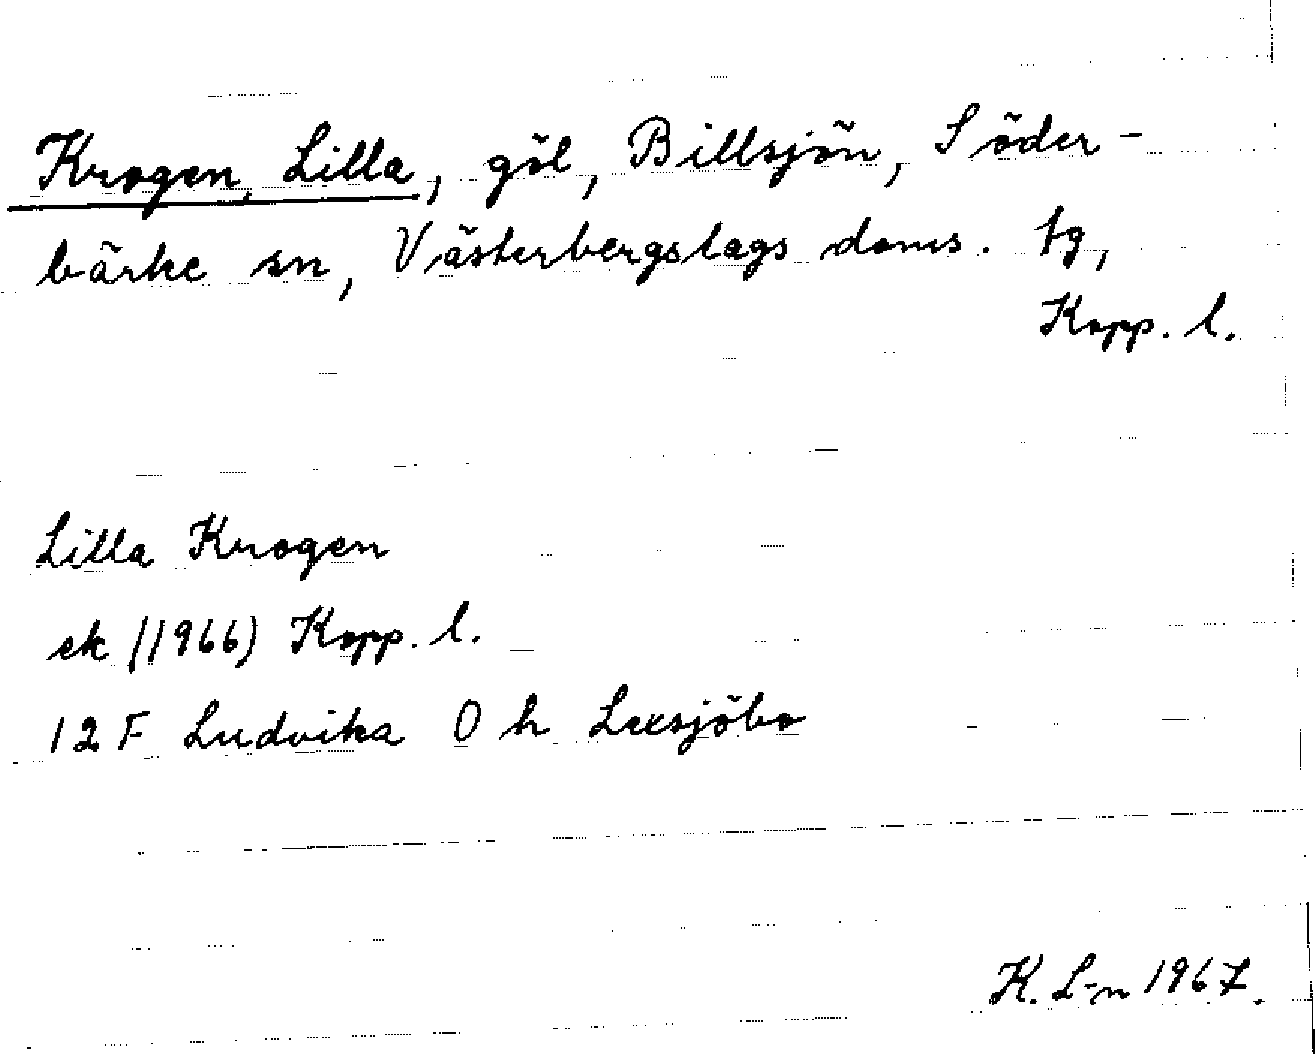 Krogen, Lilla, göl, Billsjön, Söder-
bärke sn, Västerbergslags doms. tg,
Kopp. l.
Lilla Krogen
ek (1966) Kopp. l.
12 F Ludvika 0 h Lexsjöbo
K. L-n 1967.